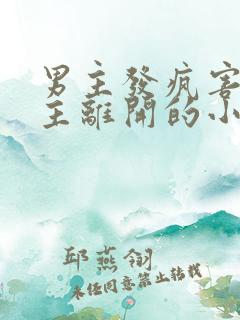 男主發瘋害
主離開的小
邱燕翎
未经同意禁止转载